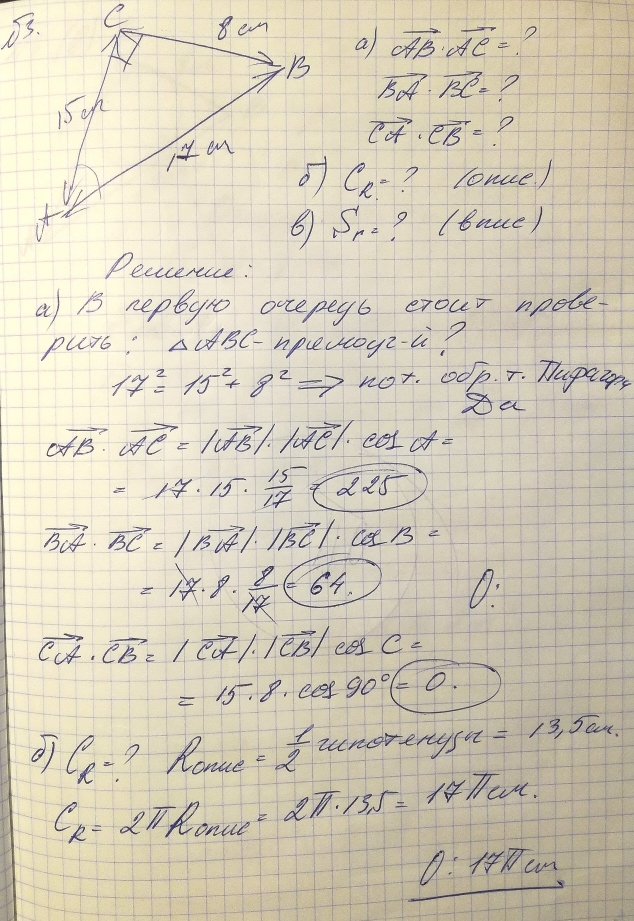 №3.
C
8 см
B
15 см
17 см
A
а) AB · AC = ?
BA · BC = ?
CA · CB = ?
б) C_R = ? (опис.)
в) S_r = ? (впис)
Решение:
а) В первую очередь стоит прове-
рить: △ABC - прямоуг-й?
17² = 15² + 8² ⟹ по т. обр. т. Пифагора
Да
AB · AC = |AB| · |AC| · cos A =
= 17 · 15 · 15/17 = 225
BA · BC = |BA| · |BC| · cos B =
= 17 · 8 · 8/17 = 64.
О:
CA · CB = |CA| · |CB| cos C =
= 15 · 8 · cos 90° = 0.
б) C_R = ? R опис = 1/2 гипотенузы = 13,5 см.
C_R = 2π R опис = 2π · 13,5 = 17π см.
О: 17π см